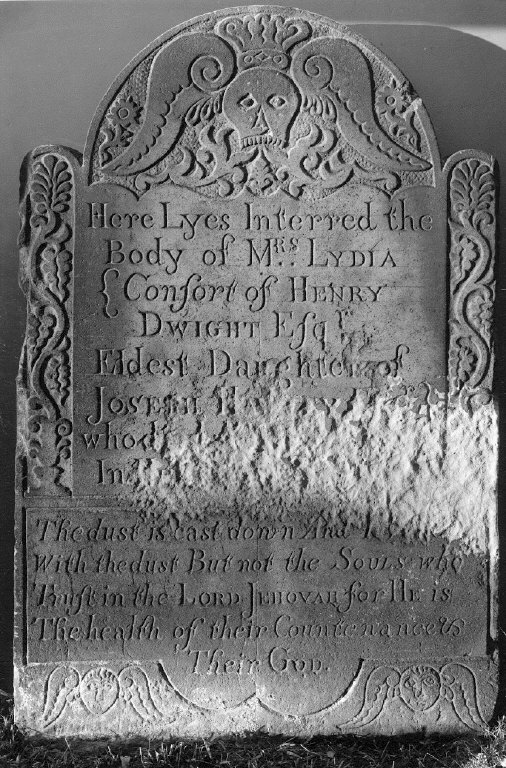 Here Lyes Interred the
Body of Mrs. LYDIA
Consort of HENRY
DWIGHT Esqr.
Eldest Daughter of
JOSEPH
who
In
The dust is cast down And
With the dust But not the SOULS who
Trust in the LORD JEHOVAH for HE is
The health of their Countenance &
Their GOD.